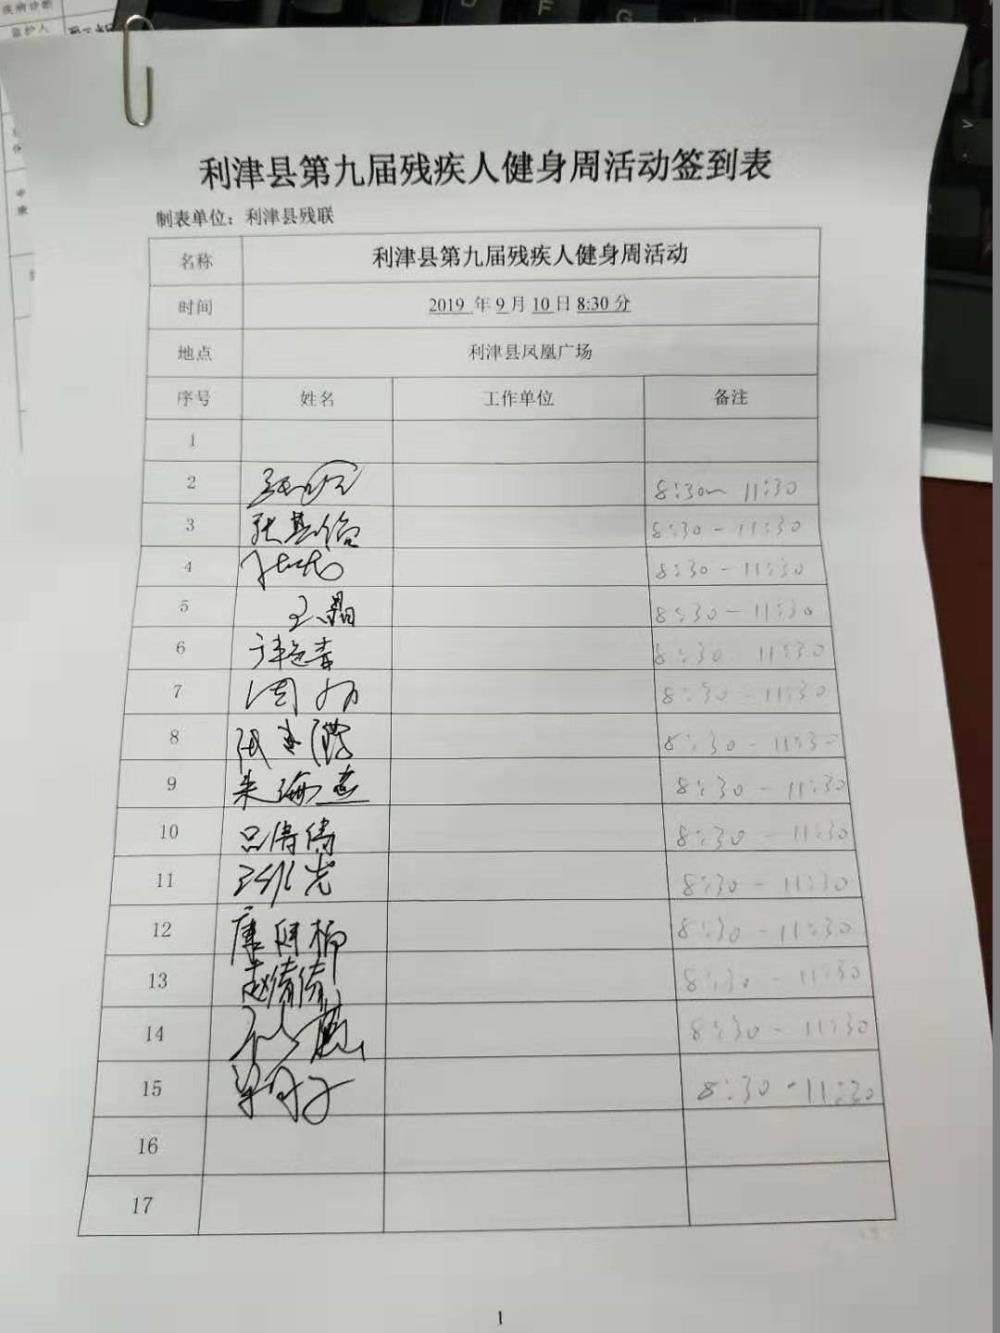 疾病诊断
监护人
利津县第九届残疾人健身周活动签到表
制表单位：利津县残联
名称 利津县第九届残疾人健身周活动
时间 2019 年 9 月 10 日 8:30 分
地点 利津县凤凰广场
序号 姓名 工作单位 备注
1
2 8:30~ 11:30
3 张基俗 8:30 - 11:30
4 8:30 - 11:30
5 王晶 8:30 - 11:30
6 8:30 11:30
7 8:30 - 11:30
8 8:30 - 11:30
9 朱海燕 8:30 - 11:30
10 吕倩倩 8:30 - 11:30
11 8:30 - 11:30
12 8:30 - 11:30
13 赵倩倩 8:30 - 11:30
14 8:30 - 11:30
15 8:30 - 11:30
16
17
1